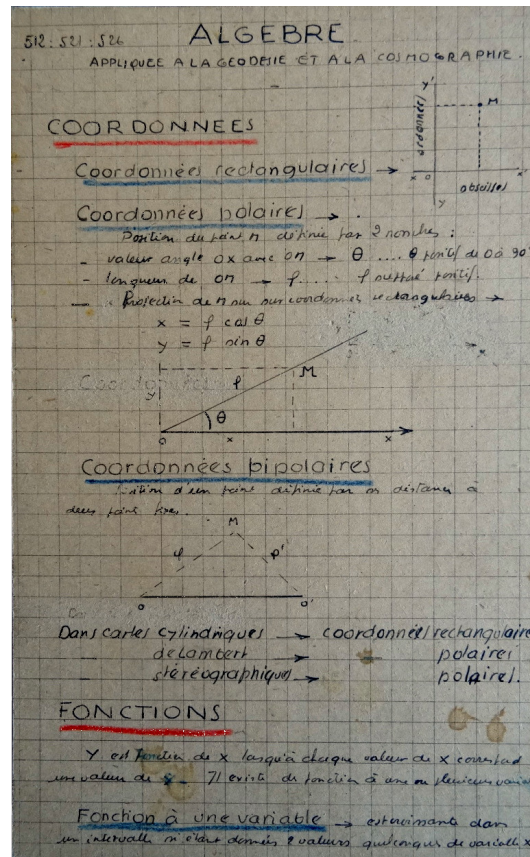 512: 521: 526
ALGEBRE
APPLIQUEE A LA GEODESIE ET A LA COSMOGRAPHIE.
COORDONNEES
y'
M
ordonnées
x o x'
abscisses
y
Coordonnées rectangulaires →
Coordonnées polaires →
Position du point M définie par 2 nombres :
- valeur angle OX avec OM → θ .... θ positif de 0 à 90°
- longueur de OM → ρ .... ρ positif.
- Projection de M sur coordonnées rectangulaires →
x = ρ cos θ
y = ρ sin θ
M
y ρ
θ
o x x
Coordonnées bipolaires
d'un point définie par distances à
deux points fixes.
M
ρ ρ'
O O'
Dans cartes cylindriques → coordonnées rectangulaires
- de Lambert → polaires
- stéréographiques → polaires.
FONCTIONS
Y est fonction de x lorsqu'à chaque valeur de x correspond
une valeur de y - Il existe des fonction à une ou plusieurs
Fonction à une variable → est croissante dans
un intervalle si étant données 2 valeurs quelconques de variable x